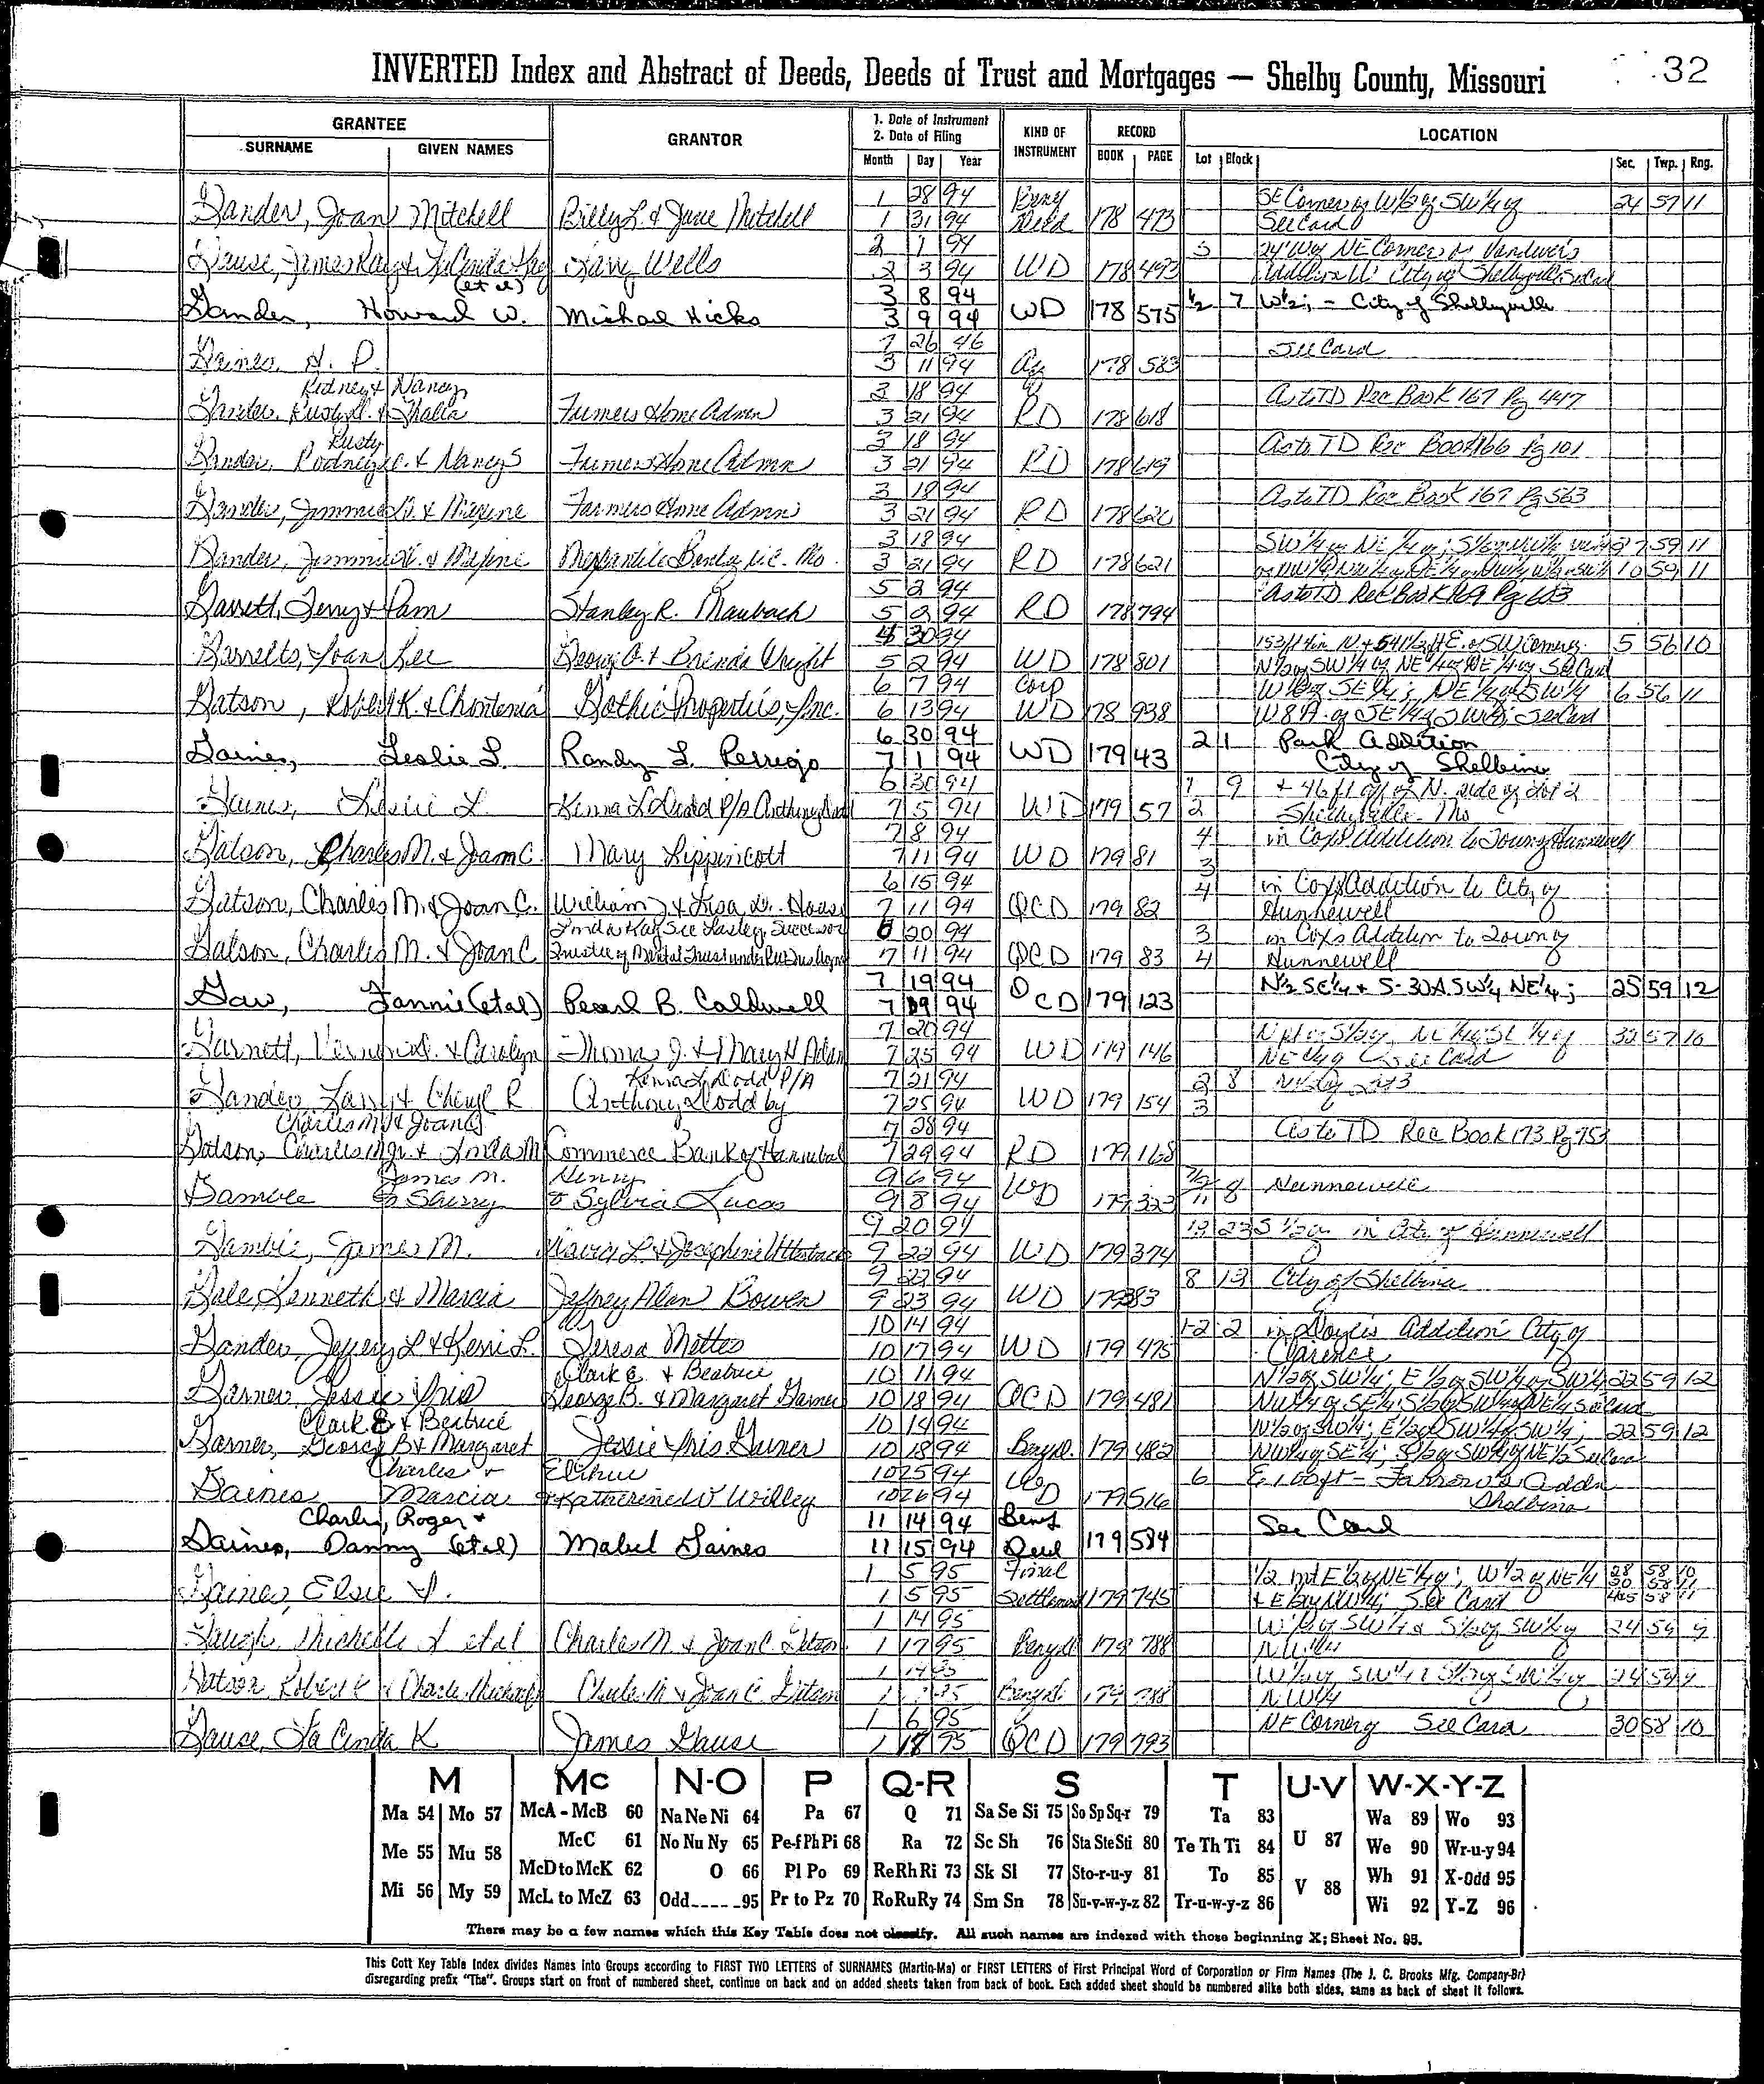 INVERTED Index and Abstract of Deeds, Deeds of Trust and Mortgages — Shelby County, Missouri 32
GRANTEE GRANTOR 1. Date of Instrument 2. Date of Filing KIND OF INSTRUMENT RECORD LOCATION
SURNAME GIVEN NAMES Month Day Year BOOK PAGE Lot Block Sec. Twp. Rng.
1 28 94 Beny SE Corner of W1/2 of SW1/4 of 24 57 11
Gander, Joan Mitchell Billy L. & Jane Mitchell 1 31 94 Deed 178 473 See Card
2 1 94 3 24' W of NE Corner
Gause, James Ray & LaCinda Kay Larry Wells 2 3 94 WD 178 493 City of Shelbyville See Card
(et al) 3 8 94 1/2 7 W1/2; - City of Shelbyville
Gander, Howard W. Michael Hicks 3 9 94 WD 178 575
7 26 46 See Card
Gaines, H. P. 3 11 94 178 583
Rodney & Nancy 3 18 94 As to TD Rec Book 167 Pg 447
Gander, Rusty & Thalia Farmers Home Admn 3 21 94 RD 178 618
Rusty 3 18 94 As to TD Rec Book 166 Pg 101
Gander, Rodney & Nancy S Farmers Home Admn 3 21 94 RD 178 619
3 18 94 As to TD Rec Book 167 Pg 563
Gander, Jimmie & Maxine Farmers Home Admn 3 21 94 RD 178 620
3 18 94 SW1/4 of NE1/4; 59 11
Gander, Jimmie & Maxine Mercantile Bank of N.E. Mo. 3 21 94 RD 178 621 10 59 11
5 2 94 As to TD Rec Book 169 Pg 603
Garrett, Terry & Pam Stanley R. Maubach 5 2 94 RD 178 794
4 30 94 of SW Corner 5 56 10
Joan Lee & Brenda Wright 5 2 94 WD 178 801 N1/2 of SW1/4 of NE1/4 of NE1/4 of See Card
6 7 94 Corp W1/2 of SE1/4; NE1/4 of SW1/4 6 56 11
Gatson, Robert K. & Chontenia Gothic Properties, Inc. 6 13 94 WD 178 938 W8A. of SE1/4 of SW1/4; See Card
6 30 94 2 1 Park Addition
Gaines, Leslie L. Randy L. Perrigo 7 1 94 WD 179 43 City of Shelbina
6 30 94 1 9 + 46 ft off of N. side of Lot 2
Gaines, Leslie L. Kenna L Dodd P/A Anthony Dodd 7 5 94 WD 179 57 2 Shelbyville Mo
7 8 94 4 in Cox's Addition to Town of Hunnewell
Gatson, Charles M. & Joan C. Mary Lippincott 7 11 94 WD 179 81 3
6 15 94 4 in Cox's Addition to City of
Gatson, Charles M. & Joan C. William J. & Lisa House 7 11 94 QCD 179 82 Hunnewell
Linda Kay See Lasley Successor 6 20 94 3 in Cox's Addition to Town of
Gatson, Charles M. & Joan C. Trustee of Marital Trust under 7 11 94 QCD 179 83 4 Hunnewell
7 19 94 N1/2 SE1/4 & S-30A SW1/4 NE1/4; 25 59 12
Gaw, Fannie (et al) Pearl B. Caldwell 7 19 94 QCD 179 123
7 20 94 32 57 10
Garnett, & Carolyn Thomas J. & Mary H 7 25 94 WD 179 146 NE1/4 of See Card
Kenna L Dodd P/A 7 21 94 2 8
Gander, Larry & Cheryl R Anthony Dodd by 7 25 94 WD 179 154 3
Charles M & Joan C 7 28 94 As to TD Rec Book 173 Pg 753
Gatson, Charles M Jr. & Linda M Commerce Bank of Hannibal 7 29 94 RD 179 168
James M. Henry 9 6 94 Hunnewell
Gamble & Sherry & Sylvia Lucas 9 8 94 WD 179 323 11 8
9 20 94 in City of Hunnewell
Gamble, James M. & Josephine Utterback 9 22 94 WD 179 374
9 22 94 8 13 City of Shelbina
Gale, Kenneth & Marcia Jeffrey Alan Bowen 9 23 94 WD 179 383
10 14 94 1-2 2 in Addition City of
Gander, Jeffery L & Kerri L. Teresa Mettes 10 17 94 WD 179 475 Clarence
Clark E. & Beatrice 10 11 94 N1/2 of SW1/4; E1/2 of SW1/4 of SW1/4 22 59 12
Garner, Jessie Iris George B. & Margaret Garner 10 18 94 QCD 179 481 NW1/4 of SE1/4; S1/2 of SW1/4 of NE1/4 See Card
Clark E & Beatrice 10 14 94 N1/2 of SW1/4; E1/2 of SW1/4 of SW1/4; 22 59 12
Garner, George B & Margaret Jessie Iris Garner 10 18 94 Beny D. 179 482 NW1/4 of SE1/4; S1/2 of SW1/4 of NE1/2 See Card
Charles & 10 25 94 6 E 100ft - Addn
Gaines Marcia & Katherine V Willey 10 26 94 WD 179 516 Shelbina
Charles, Roger & 11 14 94 Benf See Card
Gaines, Danny (et al) Mabel Gaines 11 15 94 Deed 179 584
1 5 95 Final 1/2 int E1/2 of NE1/4 of; W1/2 of NE1/4 28 58 10
Gaines, Elsie 1 5 95 Settlement 179 745 & E1/2 of NW1/4; See Card
1 14 95 W1/2 of SW1/4 & S1/2 of SW1/4 of 24 54 9
Gaugh, Michelle & et al Charles M. & Joan C. Gatson 1 17 95 Beny D 179 788 NW1/4
W1/2 of SW1/4 & S1/2 of SW1/4 of
Gatson Robert K & Charles Michael Charles M & Joan C. Gatson 179 788 NW1/4
1 6 95 NE Corner of See Card 30 58 10
Gause, La Cinda K James Gause 1 18 95 QCD 179 793
M Mc N-O P Q-R S T U-V W-X-Y-Z
Ma 54 Mo 57 McA - McB 60 Na Ne Ni 64 Pa 67 Q 71 Sa Se Si 75 So Sp Sq-r 79 Ta 83 Wa 89 Wo 93
Me 55 Mu 58 McC 61 No Nu Ny 65 Pe-f Ph Pi 68 Ra 72 Sc Sh 76 Sta Ste Sti 80 Te Th Ti 84 U 87 We 90 Wr-u-y 94
McD to McK 62 O 66 Pl Po 69 Re Rh Ri 73 Sk Sl 77 Sto-r-u-y 81 To 85 Wh 91 X-Odd 95
Mi 56 My 59 McL to McZ 63 Odd-----95 Pr to Pz 70 Ro Ru Ry 74 Sm Sn 78 Su-v-w-y-z 82 Tr-u-w-y-z 86 V 88 Wi 92 Y-Z 96
There may be a few names which this Key Table does not classify. All such names are indexed with those beginning X; Sheet No. 95.
This Cott Key Table Index divides Names into Groups according to FIRST TWO LETTERS of SURNAMES (Martin-Ma) or FIRST LETTERS of First Principal Word of Corporation or Firm Names (The J. C. Brooks Mfg. Company-Br)
disregarding prefix "The". Groups start on front of numbered sheet, continue on back and on added sheets taken from back of book. Each added sheet should be numbered alike both sides, same as back of sheet it follows.